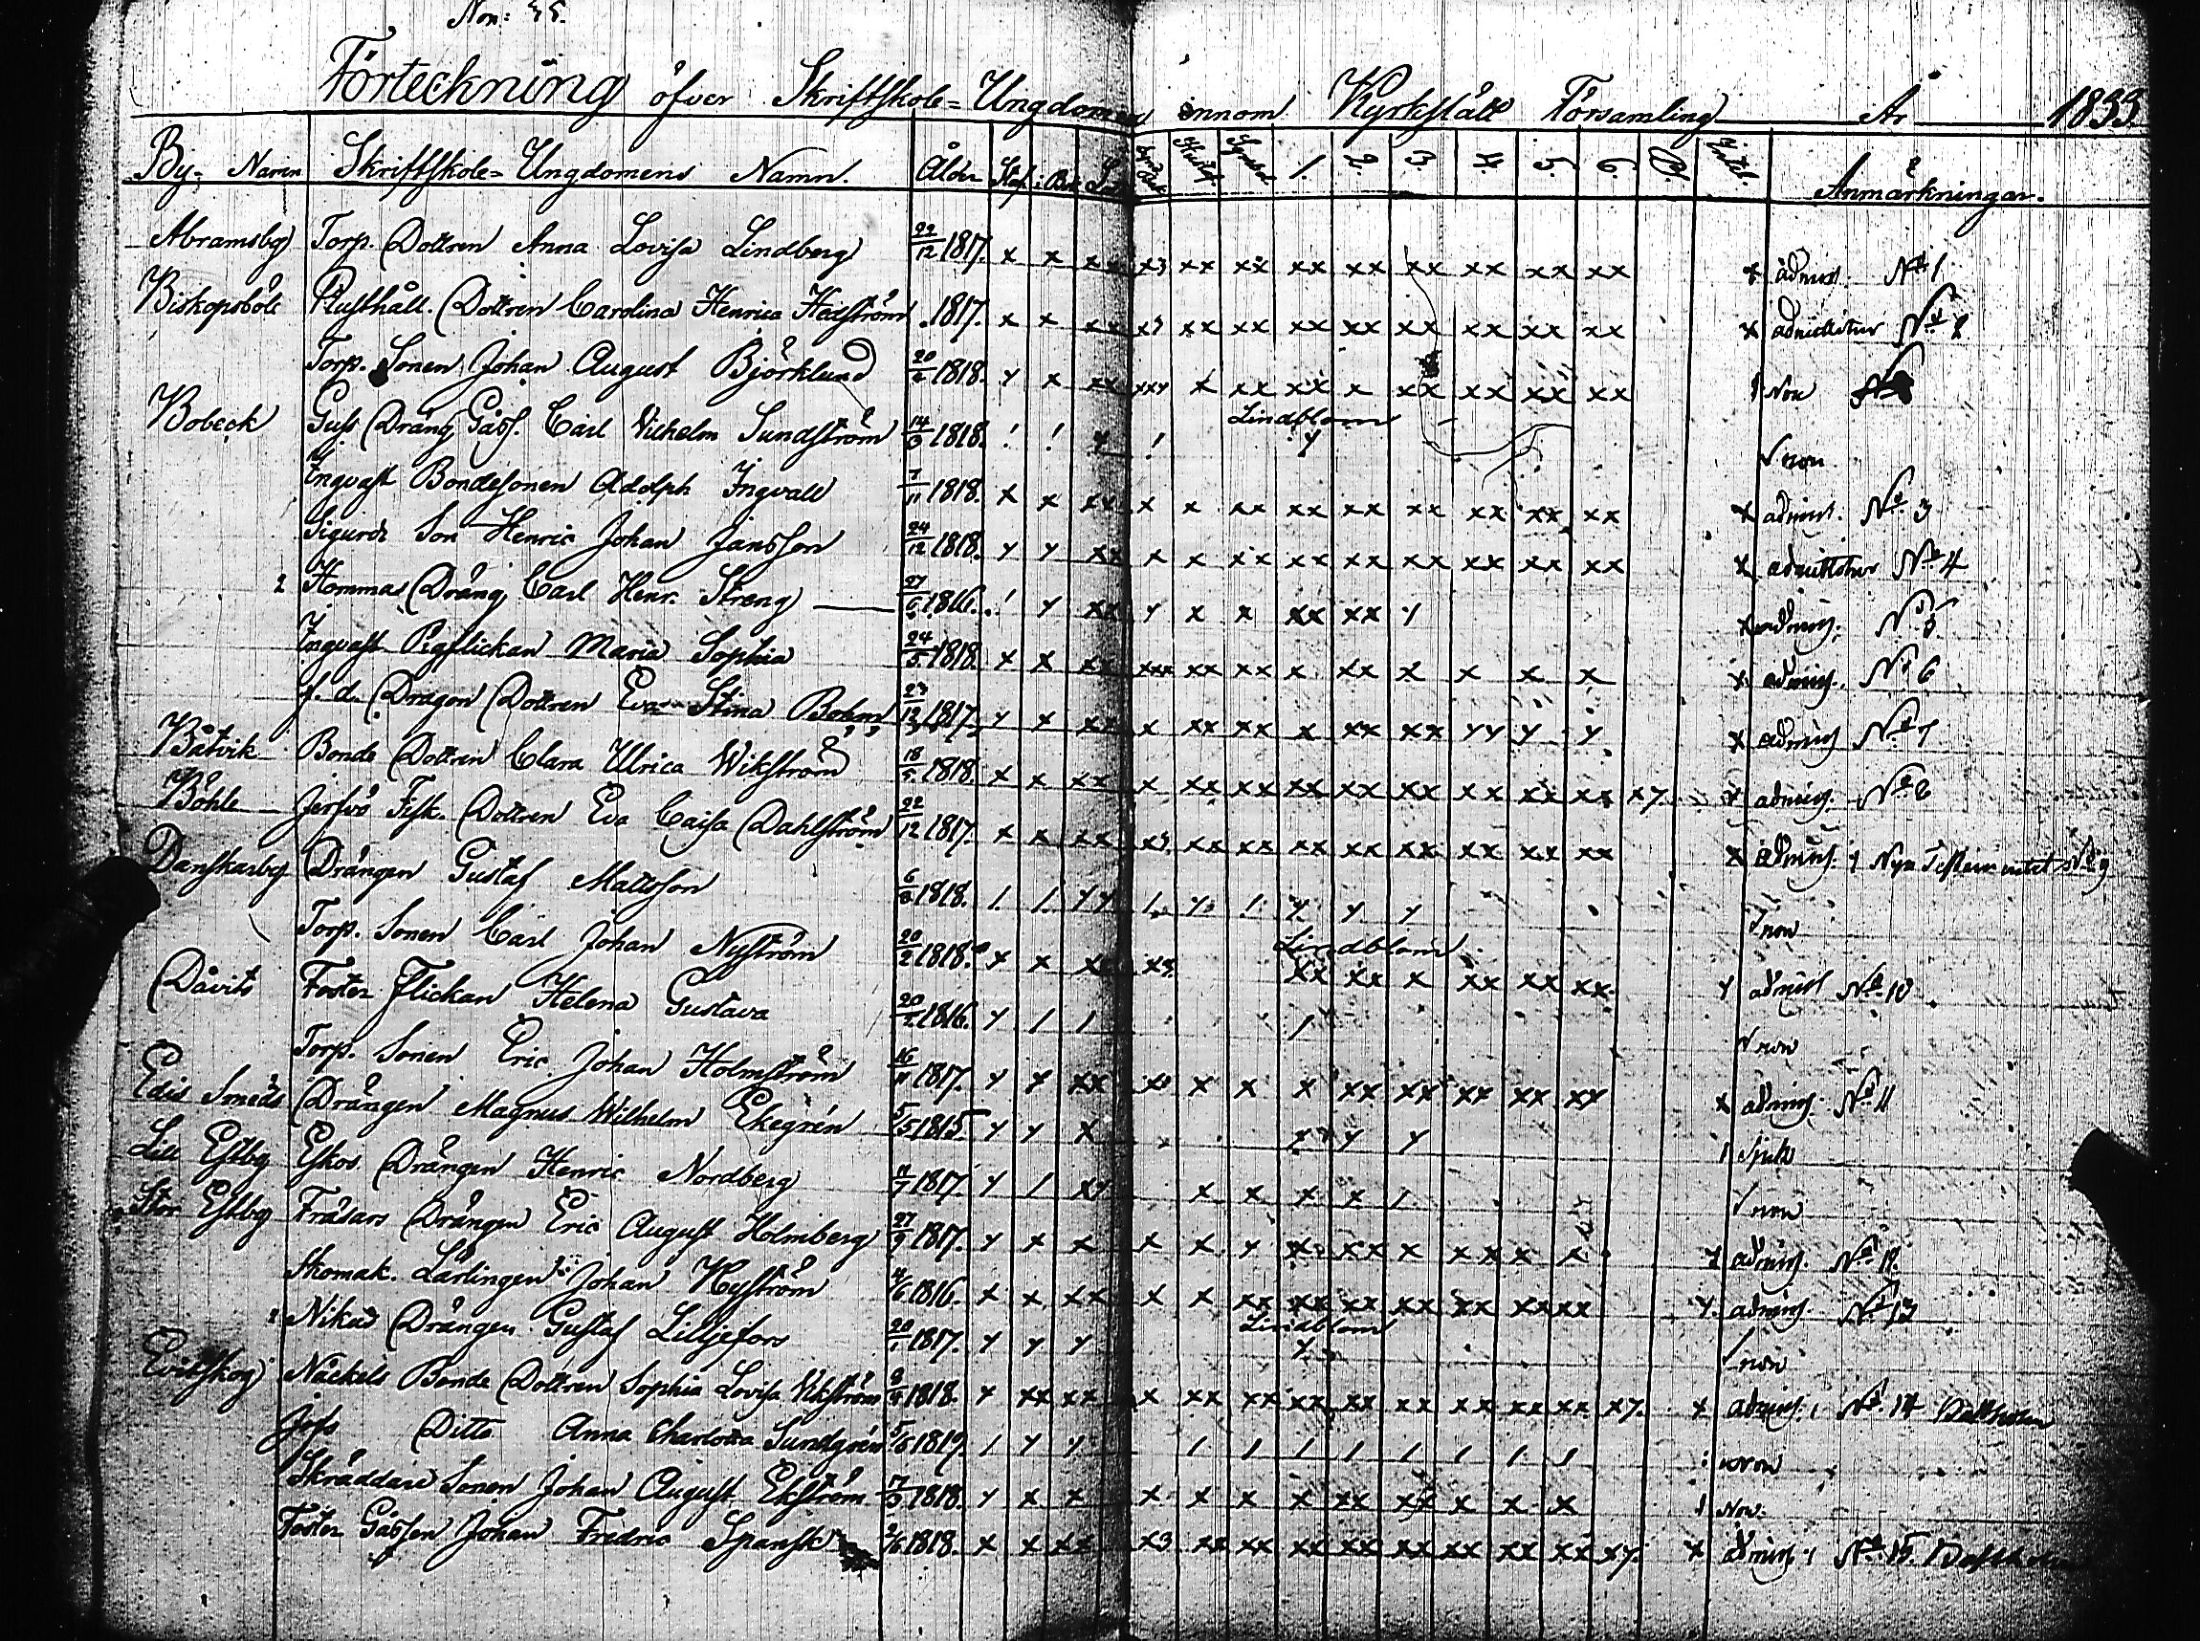 Förteckning öfver Skriftskole-Ungdomen innom Kyrkslätt Församling År 1833.
By-Namn Skriftskole-Ungdomens Namn. Ålder Staf. i Bok 1. 2. 3. 4. 5. 6. Anmärkningar.
Abramsby Torp. Dottren Anna Lovisa Lindberg 22/12 1817. x x xx x3 xx xx xx xx xx xx xx xx x admit. No 1
Biskopsböle Rusthåll. Dottren Carolina Henrica 1817. x x xx x3 xx xx xx xx xx xx xx xx x admittetur No 2
Torp. Sonen Johan August Björklund 20/2 1818. y x xx xxy x xx xx x xx xx xx xx Non
Lindblom
Bobeck Dräng Gåss. Carl Vilhelm Sundström 14/3 1818. ! ! y ! y non
Ingvast Bondesonen Adolph Ingvall 7/11 1818. x x xx x x xx xx xx xx xx xx xx x admit. No 3
Sigurds Son Henric Johan Jansson 24/12 1818. y y xx x x xx xx xx xx xx xx xx x admittetur No 4
Hommas Dräng Carl Henr. Streng 1816. ! y xx y x x xx xx y x admit. No 5
Ingvast Pigflickan Maria Sophia 24/5 1818. x x xx xxx xx xx x xx x x x x x admit. No 6
f. d. Dragon Dottren Eva Stina Bohm 1817. y x xx x xx xx x xx xx yy y y x admit. No 7
Båtvik Bonde Dottren Clara Ulrica Wikström 18/5 1818. x x xx x xx xx xx xx xx xx xx xx x7. x admit. No 8
Böhle Fisk. Dottren Eva Caisa Dahlström 22/12 1817. x x xx x3 xx xx xx xx xx xx xx xx x admit. Nya Testamentet No 9
Danskarby Drängen Gustaf Mattsson 1818. 1. 1. yy 1. y. 1. y y y non
Torp. Sonen Carl Johan Nyström 20/2 1818. x x Lindblom xx xx x xx xx xx. y admit No 10
Dåvits Foster Flickan Helena Gustava 1816. y 1 1 1 non
Torp. Sonen Eric Johan Holmström 16/11 1817. y y xx x x x xx xx xx xx xy x admit. No 11
Edis Smeds Drängen Magnus Wilhelm Ekegrén 5/5 1815. y y x y y Sjuk
Lill Estby Eskos Drängen Henric Nordberg 1817. y 1 xy x x x x 1 non
Stor Estby Fräsars Drängen Eric August Holmberg 1817. y x x x x y x xx x x x x x x admit. No 12.
Skomak. Lärlingen Johan Nyström 1816. x x xx x x xx xx xx xx xx xx xx y. admit. No 13
Lindblom
Nikus Drängen Gustaf Lilljefors 1817. y y y y non
Evitskog Näckels Bonde Dottren Sophia Lovisa Vikström 1818. x xx xx x xx xx xx xx xx xx xx xx x7. x admit. No 14
Joss Ditto Anna Charlotta Sundgrén 1819. 1 y y 1 1 1 1 1 1 1 1 non
Skräddare Sonen Johan August Ekström 1818. y x x x x x x xx xx x x x Non.
Foster Gåssen Johan Fredric Spansk 1818. x x xx x3 xx xx xx xx xx xx xx xx x7. x admit. No 15.